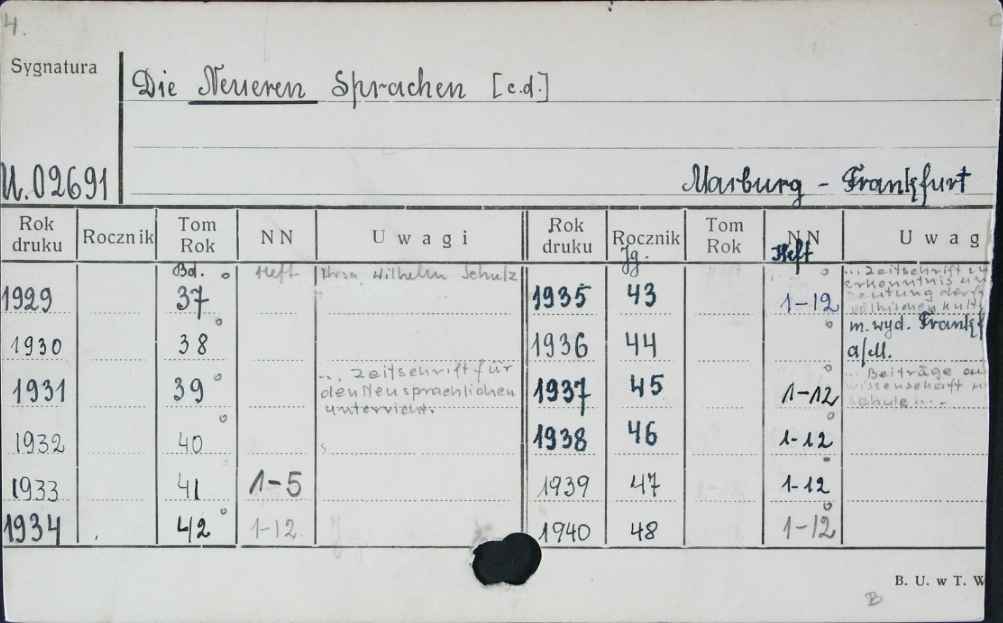 4.
Sygnatura
Die Neueren Sprachen [c.d.]
U.02691
Marburg - Frankfurt
Rok druku Rocznik Tom Rok NN Uwagi Rok druku Rocznik Tom Rok NN Uwag
Bd. Heft Wilhelm Schulz Jg. Heft
1929 37 1935 43 1-12 ... Zeitschrift
erkenntnis
1930 38 1936 44 m. wyd. Frankf
a/M.
1931 39 ... Zeitschrift für
den Neusprachlichen
Unterricht. 1937 45 1-12 ... Beiträge
wissenschaft
schule ...
1932 40 1938 46 1-12
1933 41 1-5 1939 47 1-12
1934 42 1-12 1940 48 1-12
B. U. w T. W
B